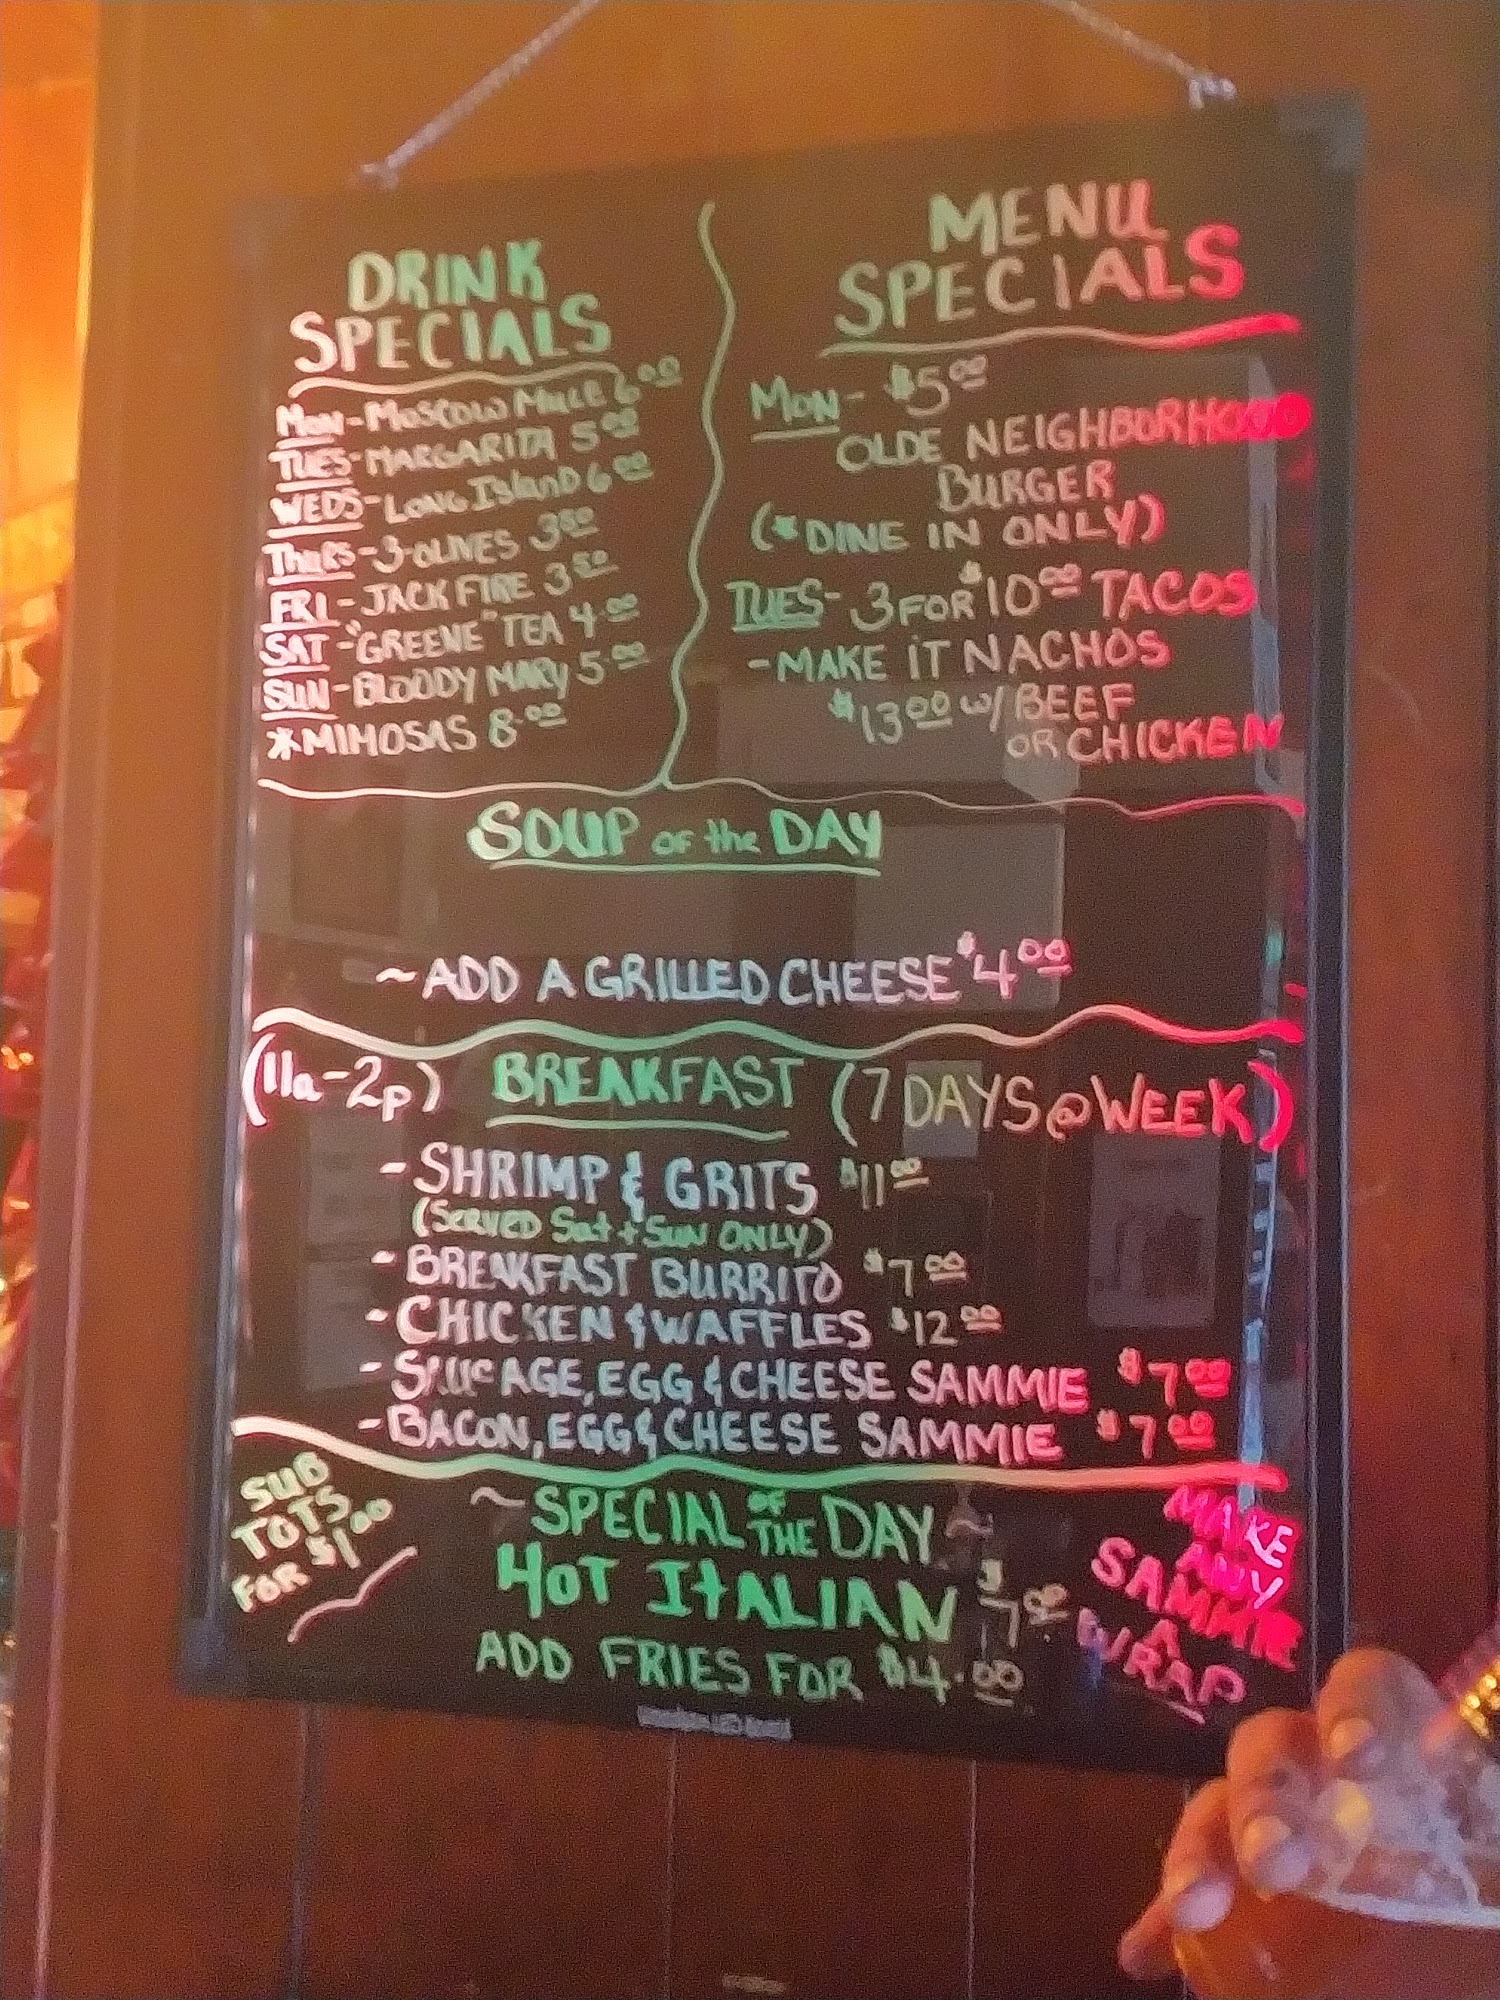 DRINK
SPECIALS
MON-MOSCOW MULE 6.00
TUES-MARGARITA 5.00
WEDS-LONG ISLAND 6.00
THURS-3-OLIVES 3.50
FRI-JACK FIRE 3.50
SAT-"GREENE" TEA 4.00
SUN-BLOODY MARY 5.00
*MIMOSAS 8.00
MENU
SPECIALS
MON- $5.00
OLDE NEIGHBORHOOD
BURGER
(*DINE IN ONLY)
TUES- 3 FOR $10.00 TACOS
-MAKE IT NACHOS
$13.00 w/ BEEF
OR CHICKEN
SOUP OF the DAY
~ADD A GRILLED CHEESE $4.00
(11a-2p) BREAKFAST (7 DAYS@WEEK)
-SHRIMP & GRITS $11.00
(SERVED Sat + SUN ONLY)
-BREAKFAST BURRITO $7.00
-CHICKEN & WAFFLES $12.00
-SAUSAGE, EGG & CHEESE SAMMIE $7.00
-BACON, EGG & CHEESE SAMMIE $7.00
SUB
TOTS
FOR $1.00
~SPECIAL OF THE DAY~
HOT ITALIAN $7.00
ADD FRIES FOR $4.00
MAKE
ANY
SAMMIE
A
WRAP